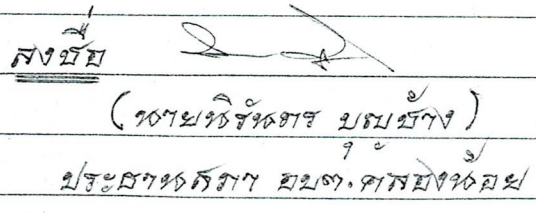 ลงชื่อ
(นายนิรันดร บุญช้าง)
ประธานสภา อบต.คลองน้อย